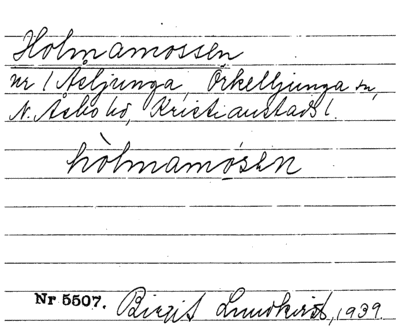 Holmamossen
nr 1 Åsljunga, Örkelljunga sn,
N. Åsbo hd, Kristianstads l.
hòlmamòsen
Nr 5507. Birgit Lundkvist, 1939.